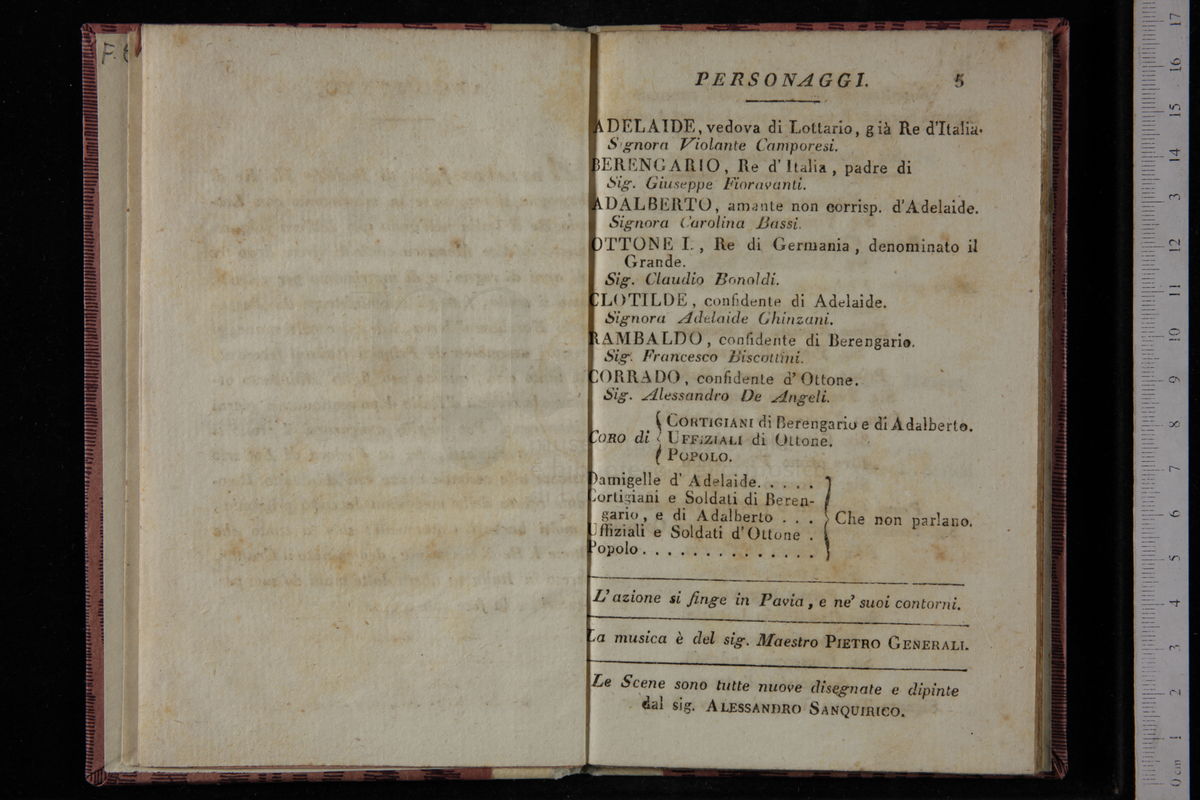 PERSONAGGI. 5
ADELAIDE, vedova di Lottario, già Re d'Italia.
Signora Violante Camporesi.
BERENGARIO, Re d'Italia, padre di
Sig. Giuseppe Fioravanti.
ADALBERTO, amante non corrisp. d'Adelaide.
Signora Carolina Bassi.
OTTONE I., Re di Germania, denominato il
Grande.
Sig. Claudio Bonoldi.
CLOTILDE, confidente di Adelaide.
Signora Adelaide Ghinzani.
RAMBALDO, confidente di Berengario.
Sig. Francesco Biscottini.
CORRADO, confidente d'Ottone.
Sig. Alessandro De Angeli.
CORTIGIANI di Berengario e di Adalberto.
CORO di UFFIZIALI di Ottone.
POPOLO.
Damigelle d'Adelaide. . . . .
Cortigiani e Soldati di Beren-
gario, e di Adalberto . . . Che non parlano.
Uffiziali e Soldati d'Ottone .
Popolo. . . . . . . . . . . . . .
L'azione si finge in Pavia, e ne' suoi contorni.
La musica è del sig. Maestro PIETRO GENERALI.
Le Scene sono tutte nuove disegnate e dipinte
dal sig. ALESSANDRO SANQUIRICO.
0 cm 1 2 3 4 5 6 7 8 9 10 11 12 13 14 15 16 17